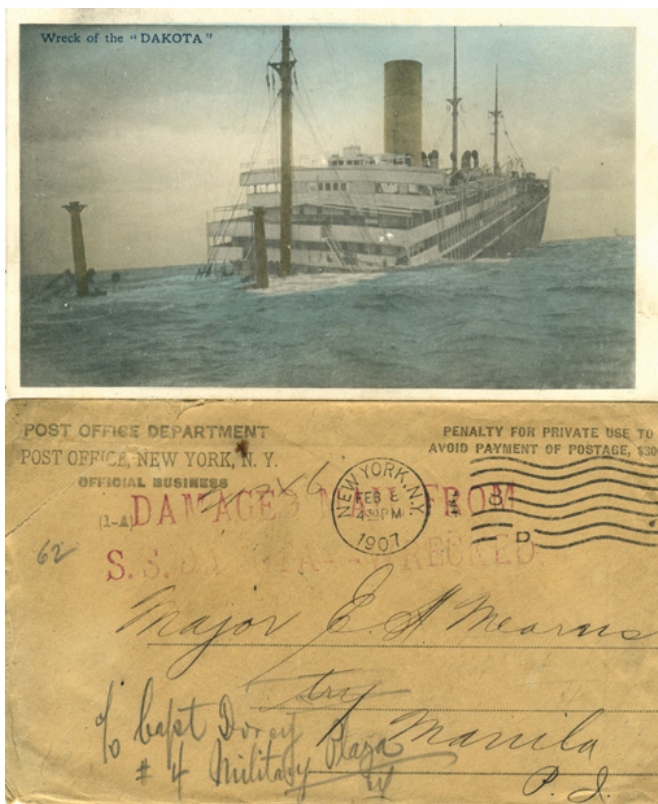 Wreck of the "DAKOTA"
POST OFFICE DEPARTMENT
POST OFFICE, NEW YORK, N. Y.
OFFICIAL BUSINESS
(1-A)
PENALTY FOR PRIVATE USE TO
AVOID PAYMENT OF POSTAGE, $30
NEW YORK, N.Y.
FEB
4 30 PM
1907
D
DAMAGED MAIL FROM
S. S. DAKOTA WRECKED
62
Major E. A Mearns
try
Manila
P. I.
c/o Capt Dorey
# 4 Military Plaza